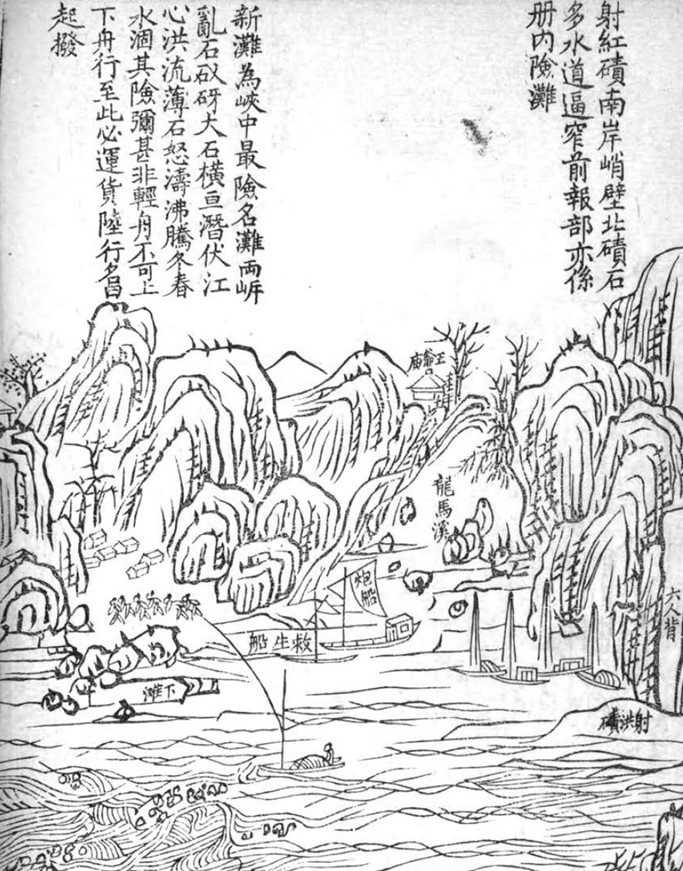 射紅磧南岸峭壁北磧石
多水道逼窄前報部亦係
册內險灘
新灘為峽中最險名灘兩岸
亂石砑大石橫亘潛伏江
心洪流薄石怒濤沸騰冬春
水涸其險彌甚非輕舟不可上
下舟行至此必運貨陸行名曰
起撥
王爺廟
龍馬溪
炮船
救生船
六人背
下灘
射洪磧